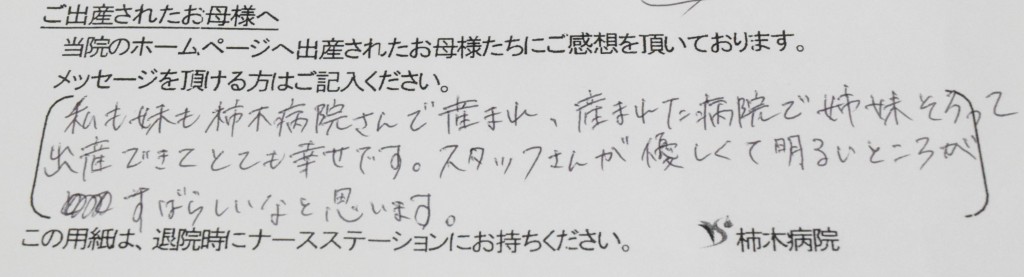 ご出産されたお母様へ
当院のホームページへ出産されたお母様たちにご感想を頂いております。
メッセージを頂ける方はご記入ください。
私も妹も柿木病院さんで産まれ、産まれた病院で姉妹そろって
出産できてとても幸せです。スタッフさんが優しくて明るいところが
すばらしいなと思います。
この用紙は、退院時にナースステーションにお持ちください。
柿木病院